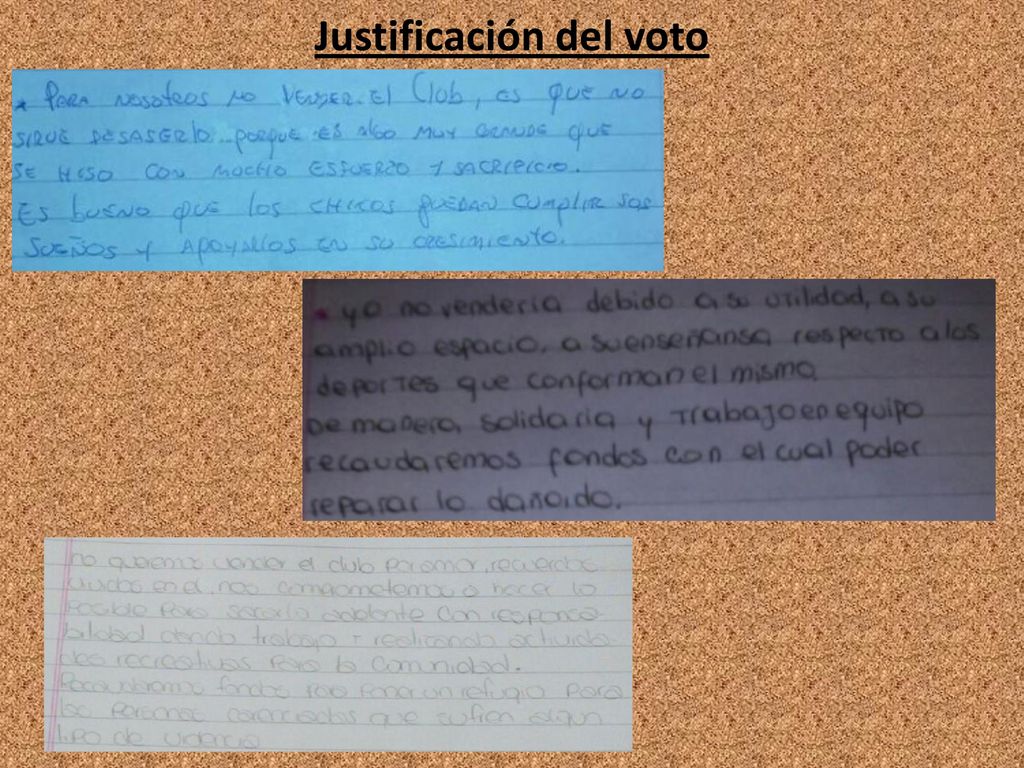 Justificación del voto
* PARA NOSOTROS NO VENDER El Club, ES QUE NO
SIRVE DESASERlo.. PORQUE ES AlGO MUY GRANDE QUE
SE HISO CON MUCHO ESFUERZO Y SACRIFICIO.
ES bUENO QUE lOS CHICOS PUEDAN CUMPlIR SUS
SUEÑOS Y APOYARlOS EN SU CRESIMIENTO.
* yo no venderia debido a su utilidad, a su
amplio espacio, a su enseñansa respecto a los
deportes que conforman el mismo.
De manera solidaria y trabajo en equipo
recaudaremos fondos con el cual poder
reparar lo dañoido.
no queremos vender el club por amor, recuerdos
vividos en el, nos comprometemos a hacer lo
posible para sacarlo adelante con responsa
bilidad dando trabajo y realizando activida
des recreativas para la comunidad.
fondos para poner un refugio para
las personas que sufren algun
tipo de violencia